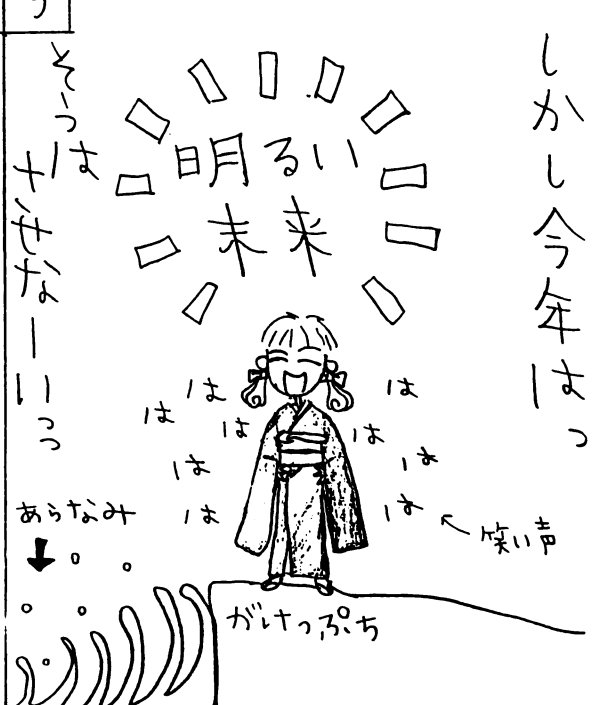 しかし今年はっ
明るい
未来
そうは
させなーいっっ
は
は
は
は
は
は
は
は
は
笑い声
あらなみ
がけっぷち